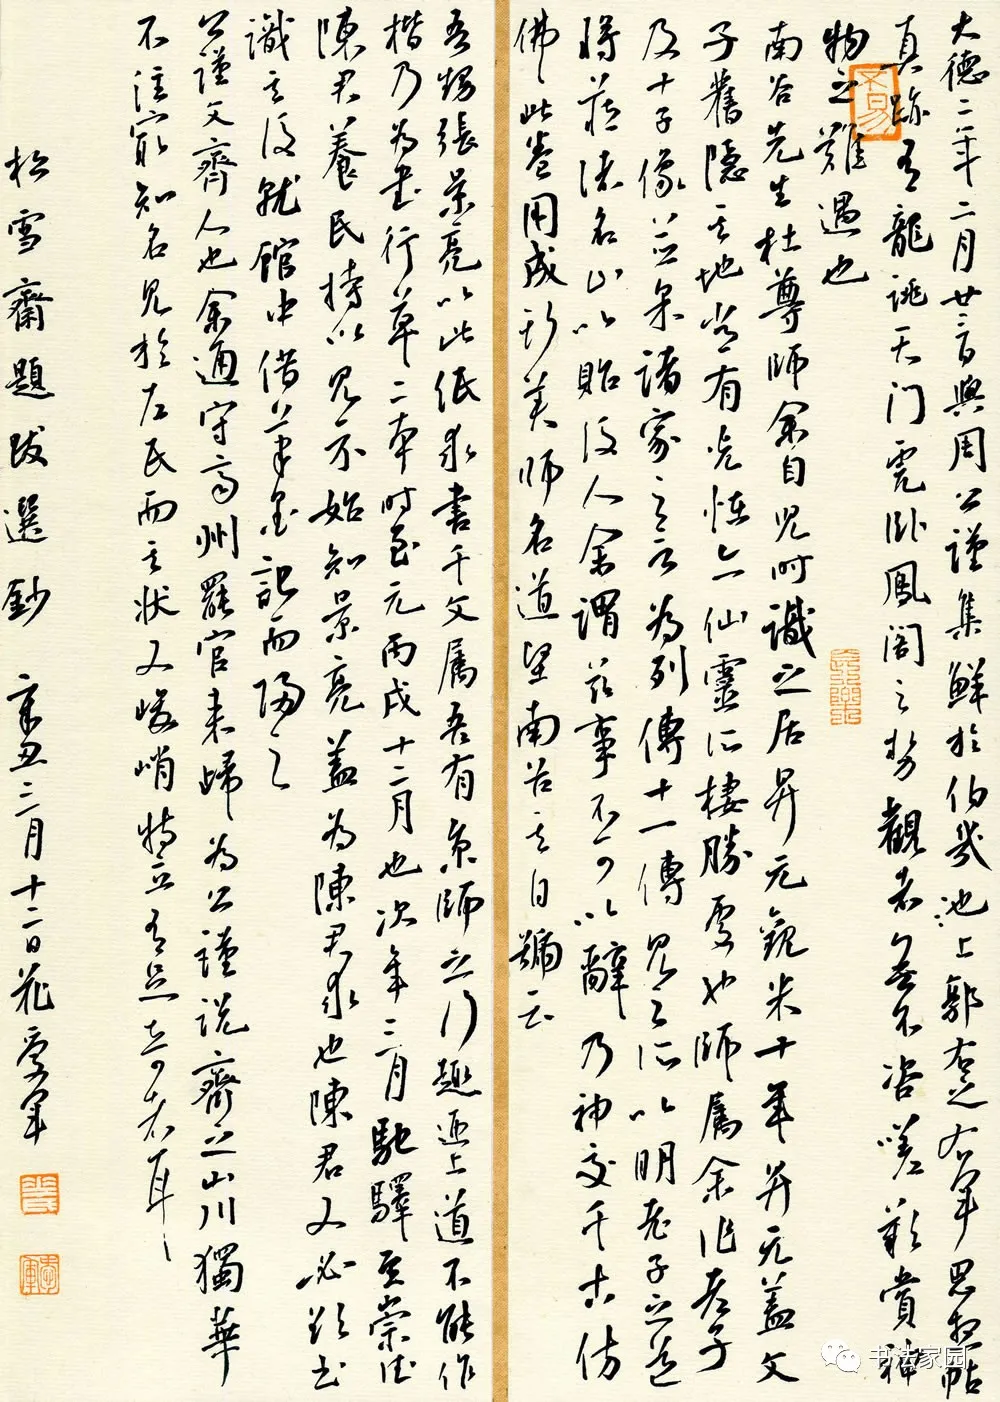 大德二年二月廿三日與周公謹集鮮於伯幾池上郭右之右軍思想帖
真跡有龍跳天門虎臥鳳閣之勢觀者無不咨嗟歎賞神
物之難遇也
南谷先生杜尊師余自兒時識之居昇元觀米十年昇元蓋文
子舊隱其地尚有光怪亦仙靈所棲勝處也師屬余作老子
及十子像並采諸家之言為列傳十一傳見之所以明老子之道
將藏諸名山以貽後人余謂茲事不可以辭乃神交千古仿
佛此卷用成斯美師名道堅南谷其自號云
吾甥張景亮以此紙求書千文屬吾有京師之行趣迫上道不能作
楷乃為書行草二本時至元丙戌十二月也次年三月馳驛至崇德
陳君養民持以見示始知景亮蓋為陳君求也陳君又必欲書
識其後就館中借筆墨記而歸之
公謹文齊人也余通守齊州罷官來歸為公謹說齊之山川獨華
不注最知名見於左氏而其狀又峻峭特立有足奇者耳
松雪齋題跋選鈔 辛丑三月十二日花
不易
书法家园